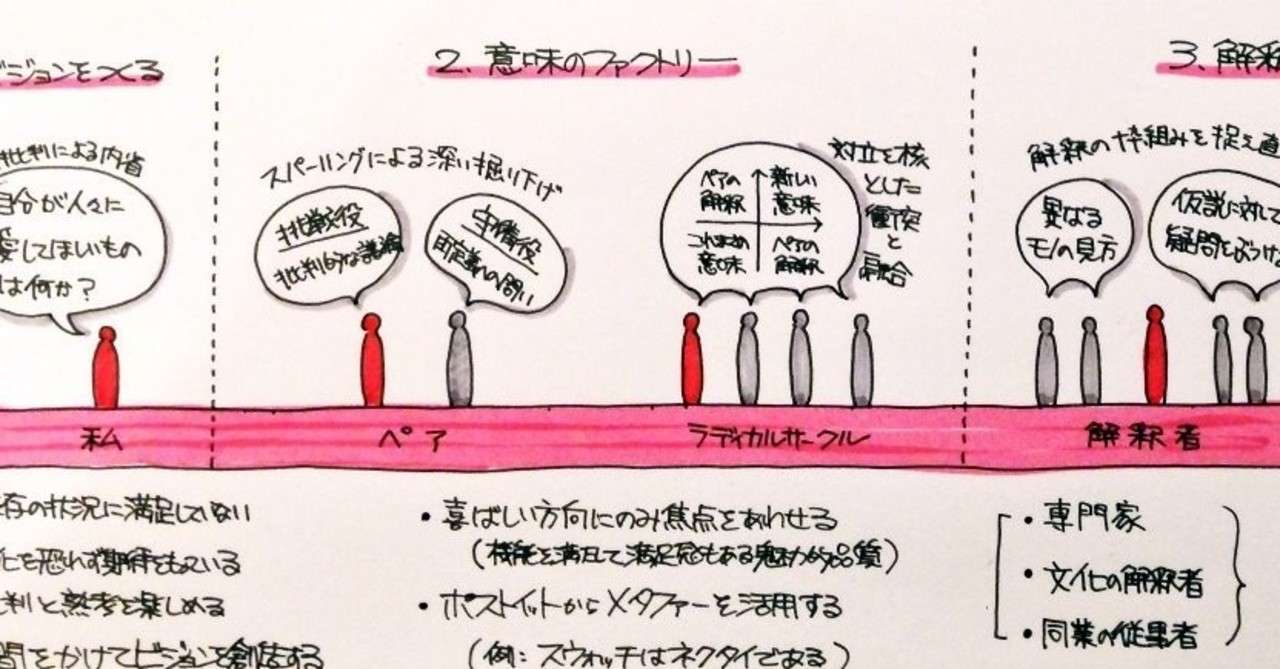 ビジョンをつくる
2. 意味のファクトリー
3. 解釈
批判による内省
自分が人々に
愛してほしいもの
は何か?
スパーリングによる深い掘り下げ
挑戦役
批判的な議論
守備役
再定義への問い
ペアの
解釈
新しい
意味
これまでの
意味
ペアの
解釈
対立を核
とした
衝突
と
融合
解釈の枠組みを捉え直
異なる
モノの見方
仮説に対して
疑問をぶつける
私
ペア
ラディカルサークル
解釈者
存の状況に満足していない
化を恐れず期待をもっている
批判と熟考を楽しめる
間をかけてビジョンを創造する
・喜ばしい方向にのみ焦点をあわせる
(機能を満たして満足感もある魅力的品質)
・ポストイットからメタファーを活用する
(例: スウォッチはネクタイである)
・専門家
・文化の解釈者
・同業の従業者